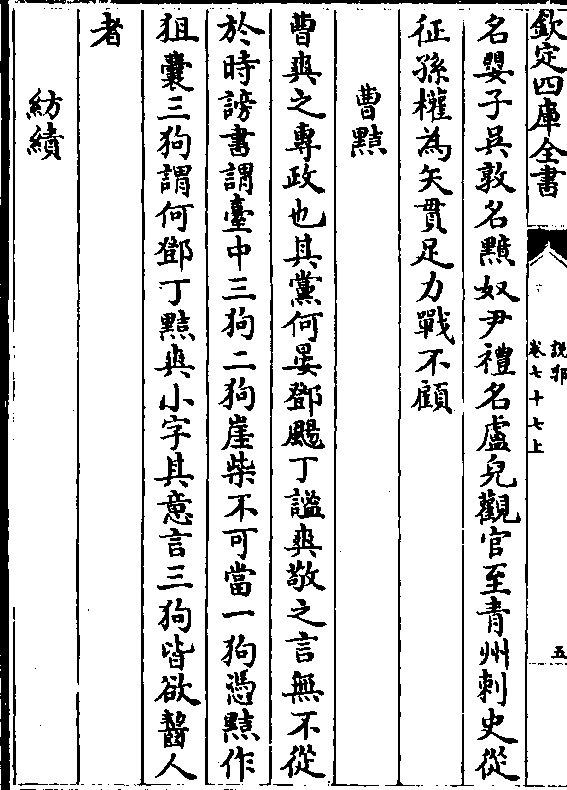 欽定四庫全書
說郛
卷七十七上
五
名嬰子吳敦名黰奴尹禮名盧兒觀官至青州刺史從
征孫權為矢貫足力戰不顧
曹黙
曹爽之專政也其黨何晏鄧颺丁謐爽敬之言無不從
於時謗書謂臺中三狗二狗崖柴不可當一狗憑黙作
狙囊三狗謂何鄧丁黙爽小字其意言三狗皆欲齧人
者
紡績